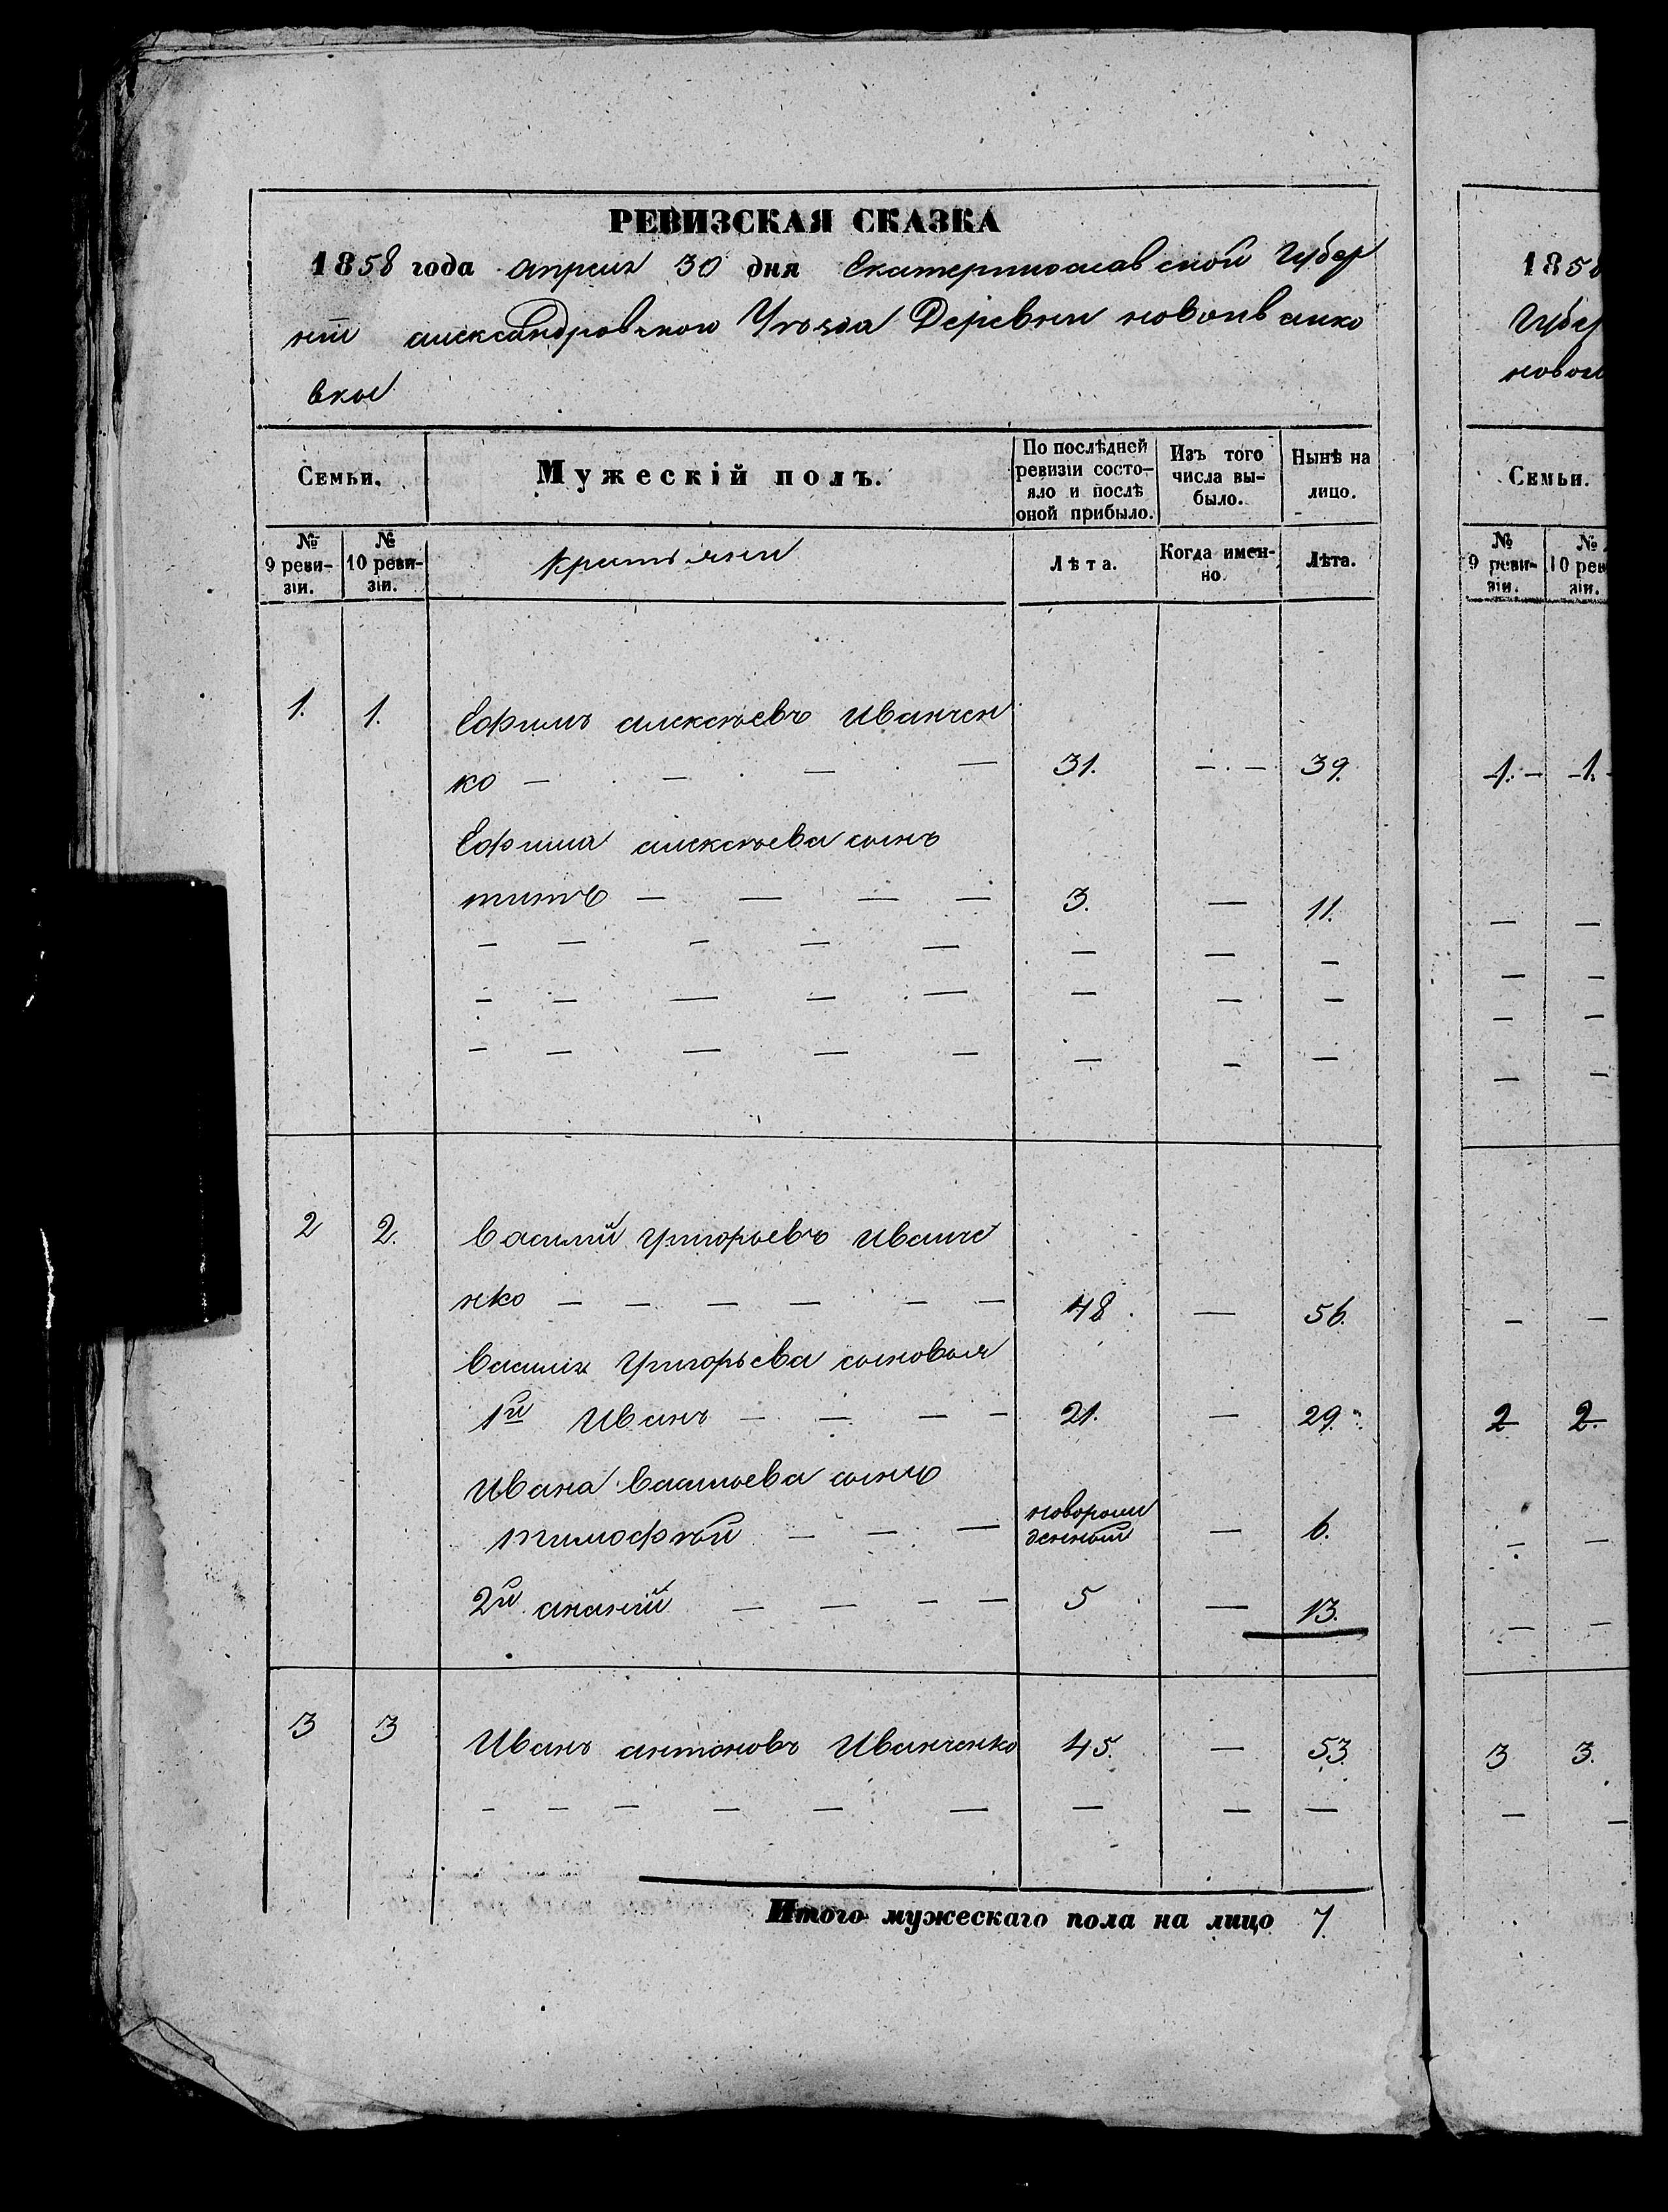 РЕВИЗСКАЯ СКАЗКА
1858 года апреля 30 дня Екатеринославской Губер
нiи александровскои Уѣзда Деревни новоивaнко
вкои
Семьи.
Мужескій полъ.
По послѣдней ревизіи состо-
яло и послѣ оной прибыло.
Изъ того числа вы-
было.
Нынѣ на лицо.
№ 9 реви-
зіи.
№ 10 реви-
зіи.
Крестьяни
Лѣта.
Когда имен-
но.
Лѣта.
1. 1. Ефимъ алексѣевъ Иванчен
ко — — — — 31. — . — 39.
Ефима алексѣева сынъ
титъ — — — — 3. — 11.
2 2. Василий Григорьевъ Иванче
нко — — — — — — 48. — 56.
Василия Григорьева сыновья
1й Иванъ — — — — 21. — 29.
Ивана Васильева сынъ
тимофѣй — — — новорож
денный — 6.
2й ананій — — — — 5 — 13.
3 3 Иванъ антоновъ Иванченко 45. — 53
Итого мужескаго пола на лицо 7.
1858
Губер
новои
Семьи.
№ 9 реви-
зіи.
№ 10 рев
зіи.
1. — 1.
2 2.
3 3.